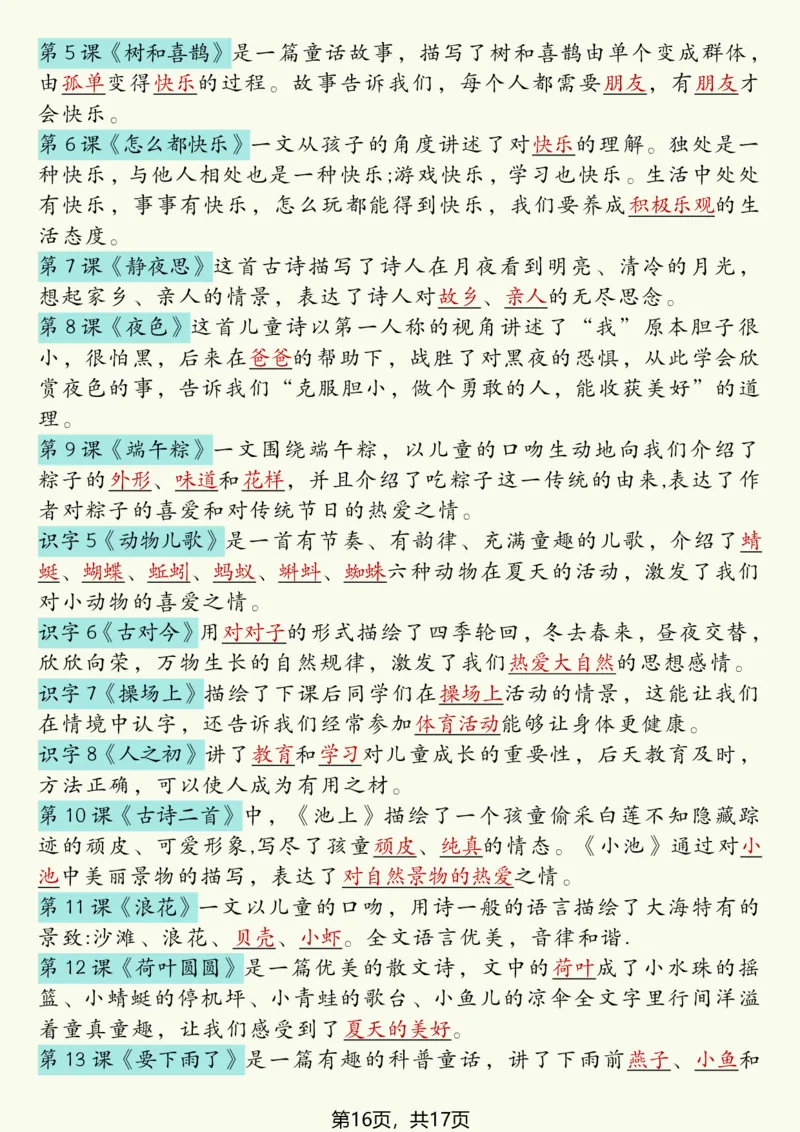 第5课《树和喜鹊》是一篇童话故事，描写了树和喜鹊由单个变成群体，
由孤单变得快乐的过程。故事告诉我们，每个人都需要朋友，有朋友才
会快乐。
第6课《怎么都快乐》一文从孩子的角度讲述了对快乐的理解。独处是一
种快乐，与他人相处也是一种快乐;游戏快乐，学习也快乐。生活中处处
有快乐，事事有快乐，怎么玩都能得到快乐，我们要养成积极乐观的生
活态度。
第7课《静夜思》这首古诗描写了诗人在月夜看到明亮、清冷的月光，
想起家乡、亲人的情景，表达了诗人对故乡、亲人的无尽思念。
第8课《夜色》这首儿童诗以第一人称的视角讲述了“我”原本胆子很
小，很怕黑，后来在爸爸的帮助下，战胜了对黑夜的恐惧，从此学会欣
赏夜色的事，告诉我们“克服胆小，做个勇敢的人，能收获美好”的道
理。
第9课《端午粽》一文围绕端午粽，以儿童的口吻生动地向我们介绍了
粽子的外形、味道和花样，并且介绍了吃粽子这一传统的由来,表达了作
者对粽子的喜爱和对传统节日的热爱之情。
识字5《动物儿歌》是一首有节奏、有韵律、充满童趣的儿歌，介绍了蜻
蜓、蝴蝶、蚯蚓、蚂蚁、蝌蚪、蜘蛛六种动物在夏天的活动，激发了我们
对小动物的喜爱之情。
识字6《古对今》用对对子的形式描绘了四季轮回，冬去春来，昼夜交替，
欣欣向荣，万物生长的自然规律，激发了我们热爱大自然的思想感情。
识字7《操场上》描绘了下课后同学们在操场上活动的情景，这能让我们
在情境中认字，还告诉我们经常参加体育活动能够让身体更健康。
识字8《人之初》讲了教育和学习对儿童成长的重要性，后天教育及时，
方法正确，可以使人成为有用之材。
第10课《古诗二首》中，《池上》描绘了一个孩童偷采白莲不知隐藏踪
迹的顽皮、可爱形象,写尽了孩童顽皮、纯真的情态。《小池》通过对小
池中美丽景物的描写，表达了对自然景物的热爱之情。
第11课《浪花》一文以儿童的口吻，用诗一般的语言描绘了大海特有的
景致:沙滩、浪花、贝壳、小虾。全文语言优美，音律和谐.
第12课《荷叶圆圆》是一篇优美的散文诗，文中的荷叶成了小水珠的摇
篮、小蜻蜓的停机坪、小青蛙的歌台、小鱼儿的凉伞全文字里行间洋溢
着童真童趣，让我们感受到了夏天的美好。
第13课《要下雨了》是一篇有趣的科普童话，讲了下雨前燕子、小鱼和
第16页，共17页